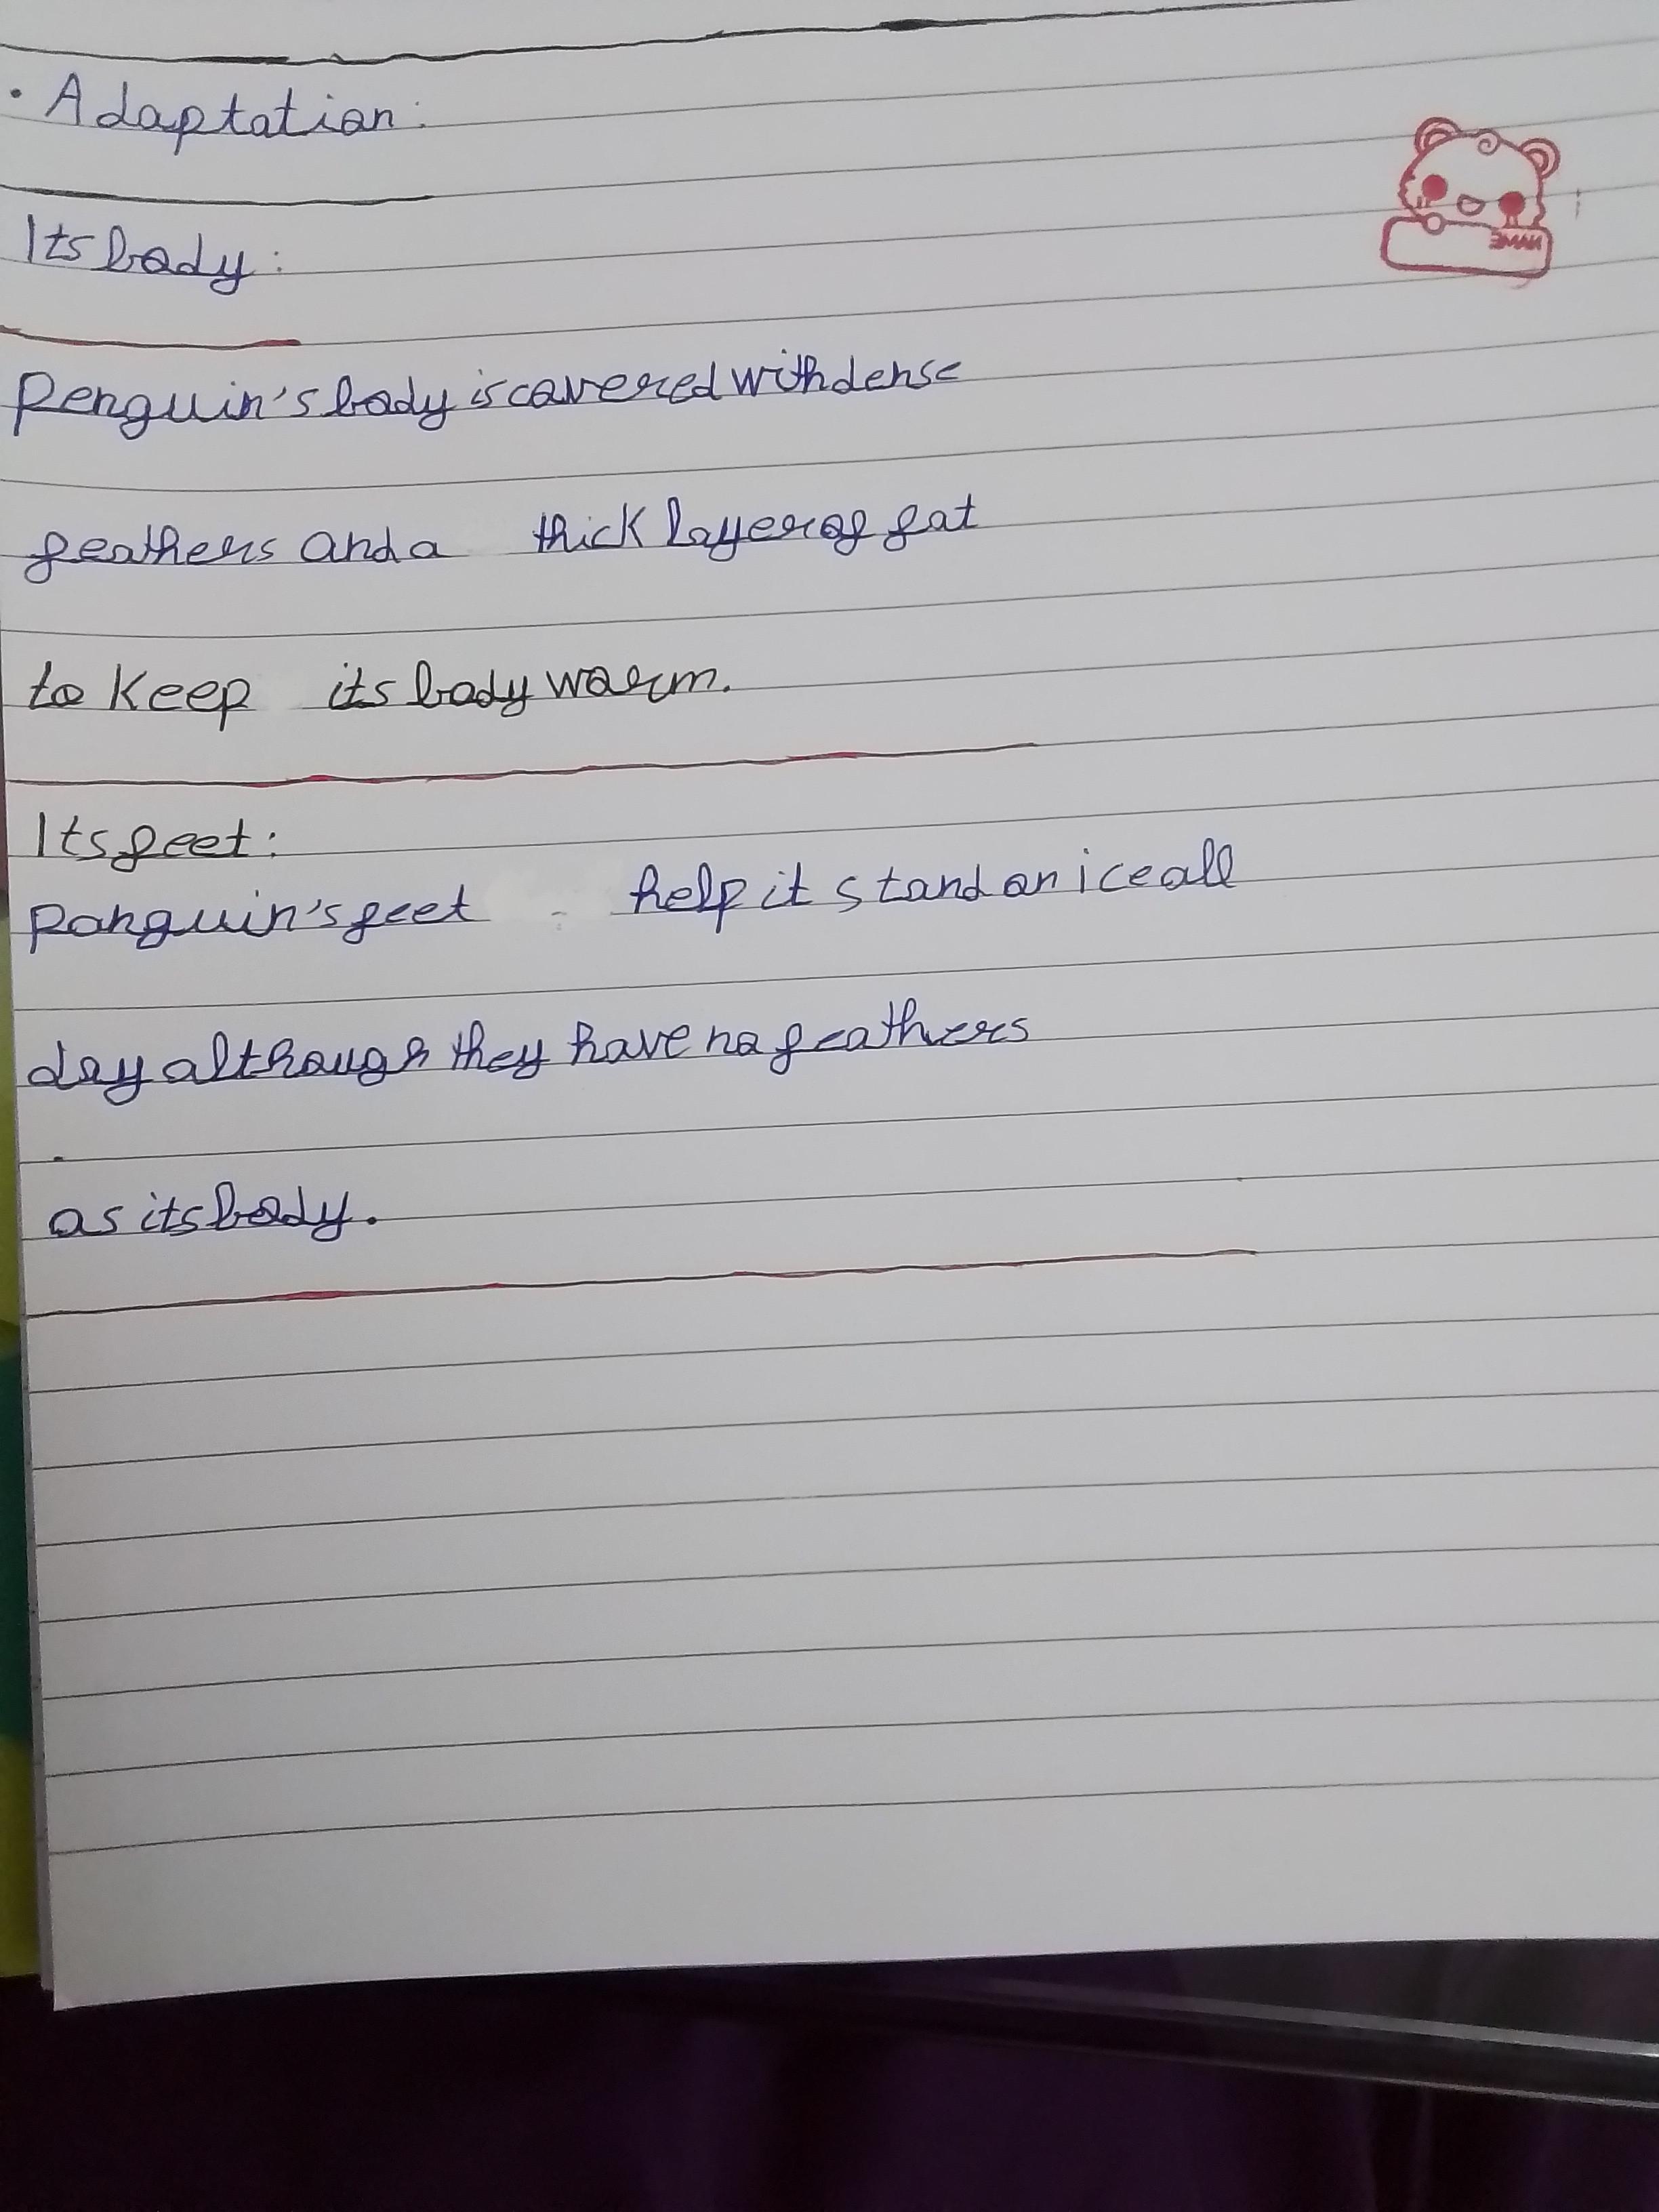 • Adaptation:
Its body:
Penguin's body is covered with dense
feathers and a thick layer of fat
to keep its body warm.
Its feet:
Panguin's feet help it stand on ice all
day although they have no feathers
as its body.
NAME